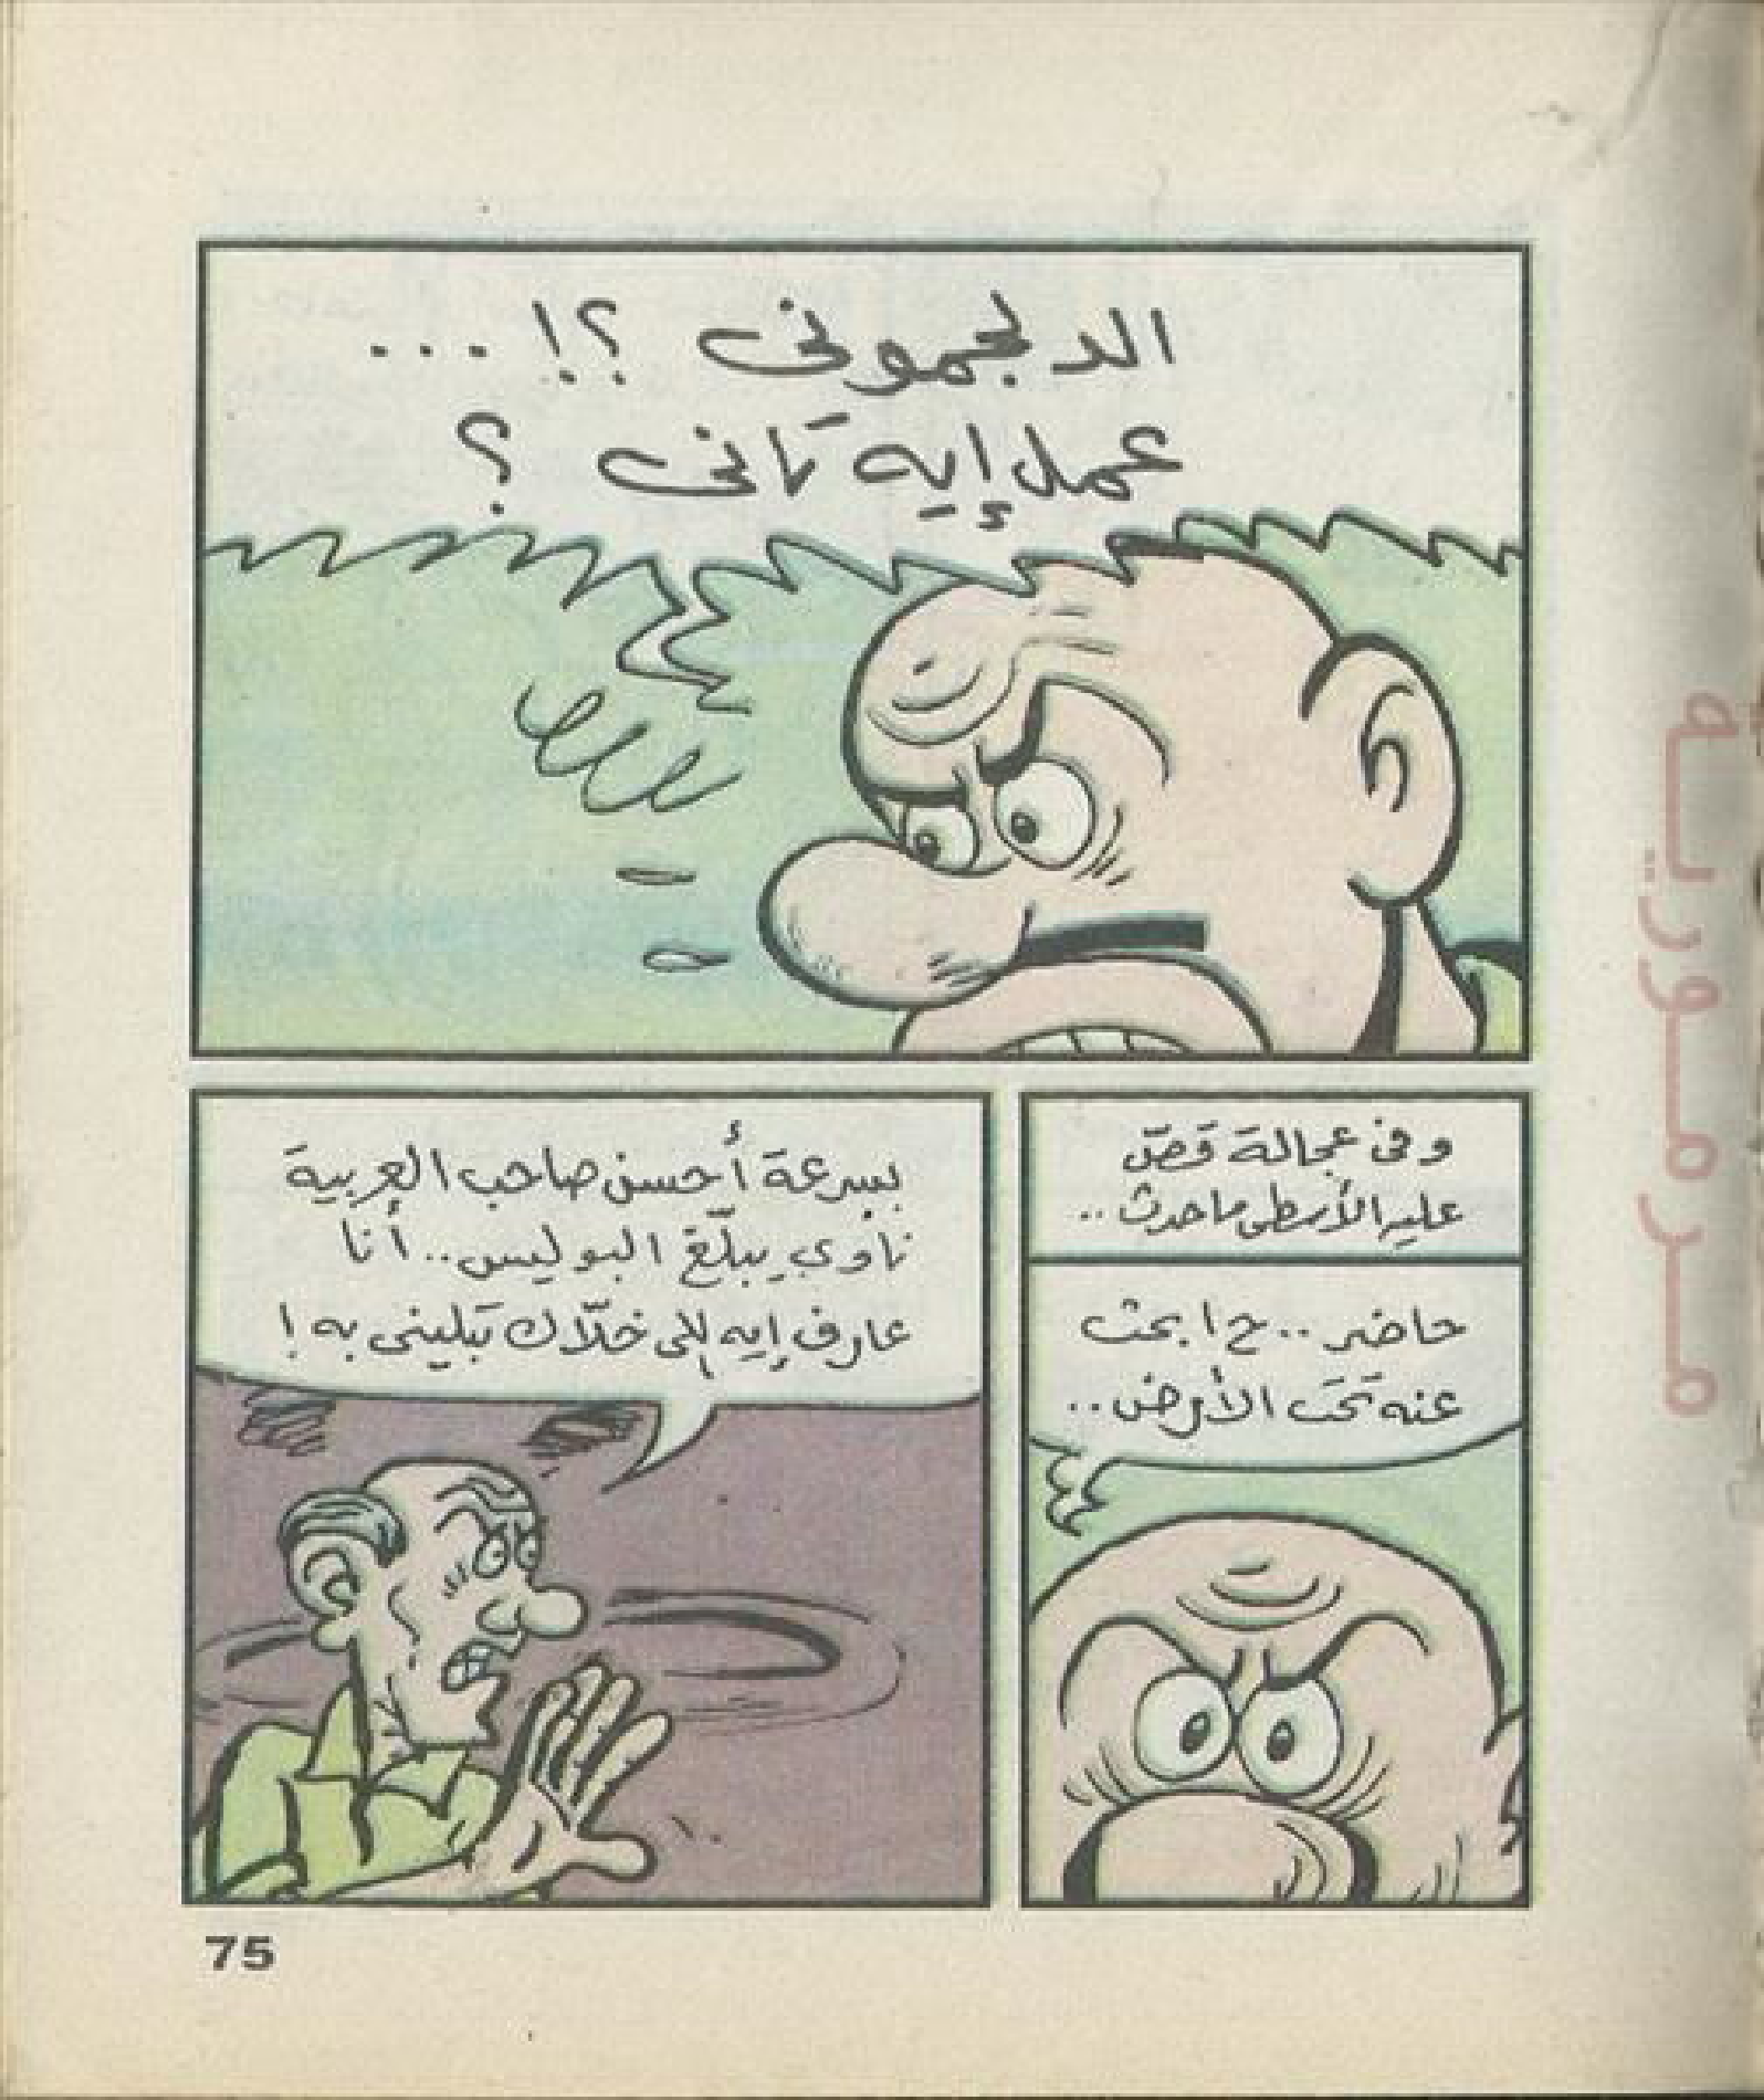 الدلجمونى ؟! ...
عمل إيه تَانى ؟
وفى عجالة قَصّ
عليه الأسطى ما حدث ..
حاضر .. ح ابحث
عنه تَحَت الأرض ..
بسرعة أحسن صاحب العربية
ناوي يبلّغ البوليس .. أنا
عارف إيه اللى خلّاك تَبلينى به !
75
مرمورية